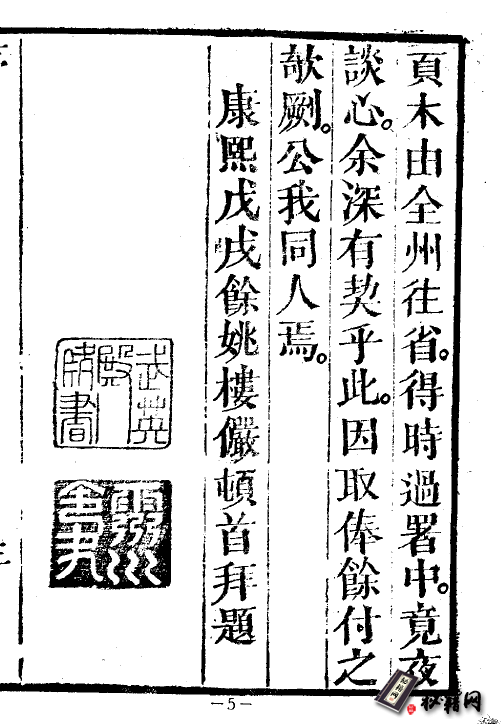 頁木由全州往省。得時過署中。竟夜
談心。余深有契乎此。因取俸餘付之
欹劂。公我同人焉。
康熙戊戌餘姚樓儼頓首拜題
武英殿書
—5—
秘籍网